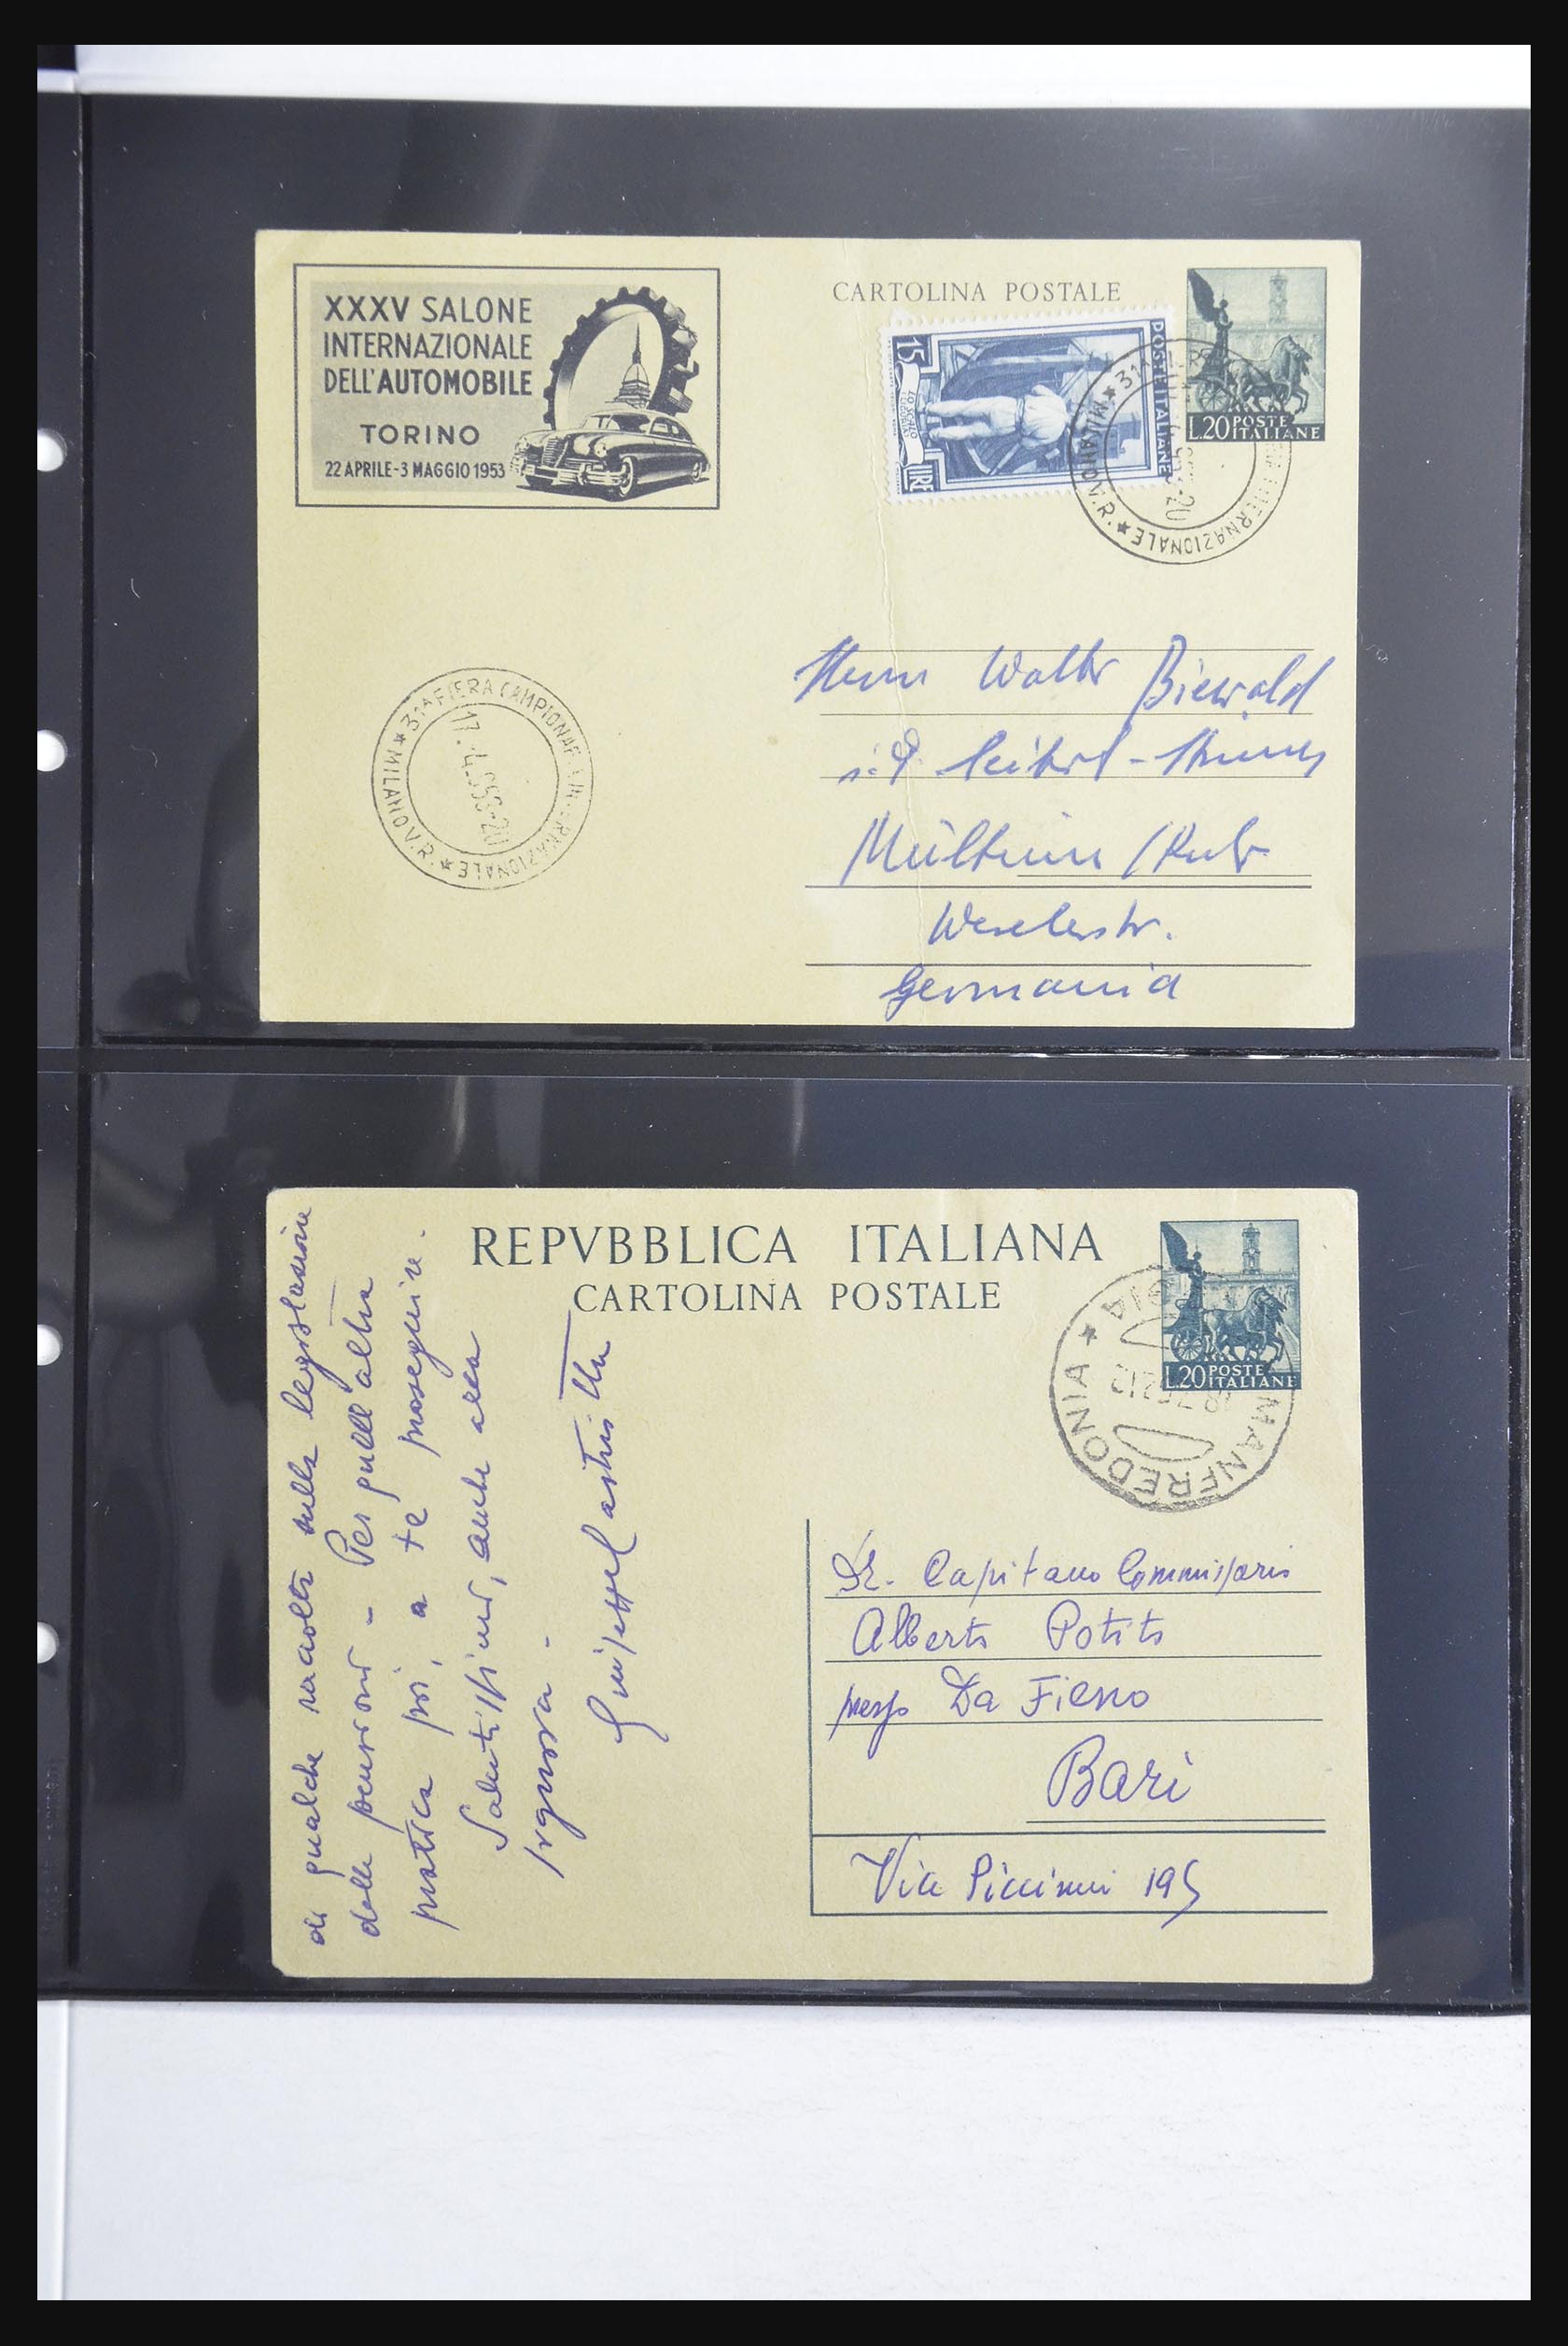 XXXV SALONE
INTERNAZIONALE
DELL'AUTOMOBILE
TORINO
22 APRILE-3 MAGGIO 1953
CARTOLINA POSTALE
15
LIRE
POSTE ITALIANE
L.20 POSTE ITALIANE
★ MILANO V.R. ★
31ª FIERA CAMPIONARIA INTERNAZIONALE
★ MILANO V.R. ★
17.4.953-20
Herrn Walter Biewald
Mülheim / Ruhr
Weselerstr.
Germania
REPVBBLICA ITALIANA
CARTOLINA POSTALE
L.20 POSTE ITALIANE
MANFREDONIA ★
Sr. Capitano Commissario
Alberto Potito
presso Da Fieno
Bari
Via Piccinni 195
di qualche raccolta sulla legislazione
delle pensioni - Per quell'altra
pratica poi, a te proseguire.
Salutissimi, anche alla
signora -